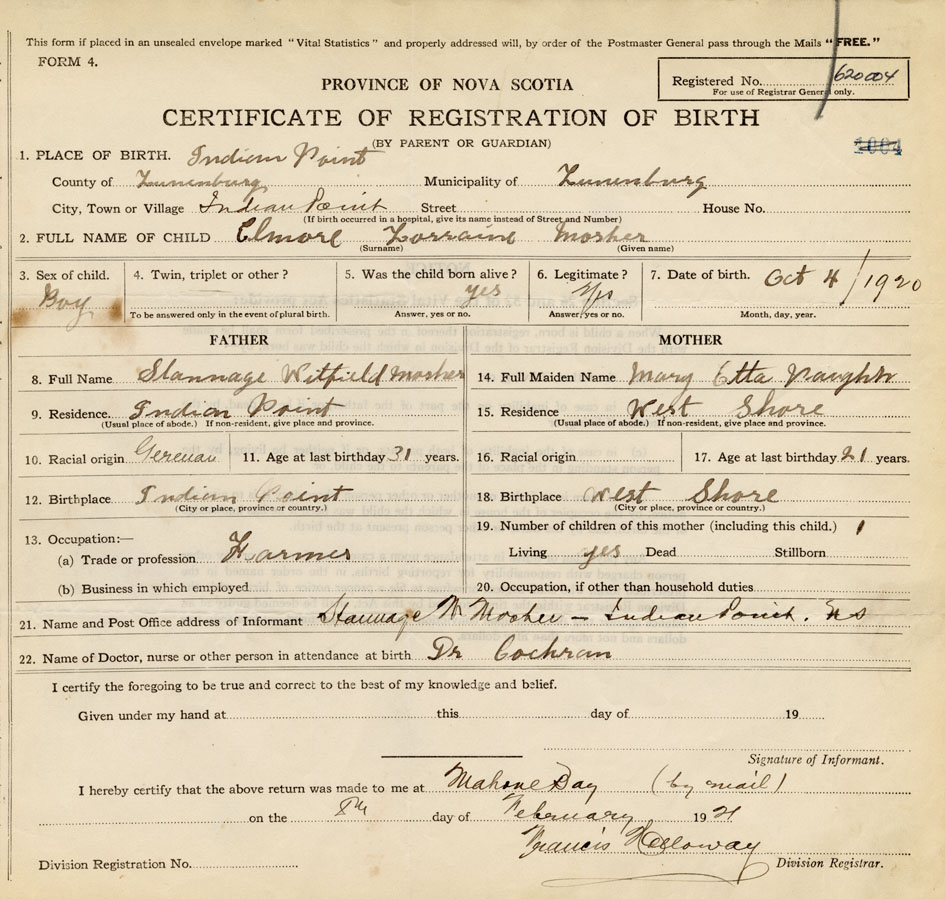 This form if placed in an unsealed envelope marked "Vital Statistics" and properly addressed will, by order of the Postmaster General pass through the Mails "FREE."
FORM 4.
Registered No. 620004
For use of Registrar General only.
PROVINCE OF NOVA SCOTIA
CERTIFICATE OF REGISTRATION OF BIRTH
(BY PARENT OR GUARDIAN)
1004
1. PLACE OF BIRTH. Indian Point
County of Lunenburg Municipality of Lunenburg
City, Town or Village Indian Point Street House No.
(If birth occurred in a hospital, give its name instead of Street and Number)
2. FULL NAME OF CHILD Elmore Lorraine Mosher
(Surname) (Given name)
3. Sex of child. 4. Twin, triplet or other? 5. Was the child born alive? 6. Legitimate? 7. Date of birth. Oct 4/1920
Boy yes yes
To be answered only in the event of plural birth. Answer, yes or no. Answer, yes or no. Month, day, year.
FATHER MOTHER
8. Full Name Stannage Witfield Mosher 14. Full Maiden Name Mary Etta
9. Residence. Indian Point 15. Residence West Shore
(Usual place of abode.) If non-resident, give place and province. (Usual place of abode.) If non-resident, give place and province.
10. Racial origin German 11. Age at last birthday 31 years. 16. Racial origin 17. Age at last birthday 21 years.
12. Birthplace Indian Point 18. Birthplace West Shore
(City or place, province or country.) (City or place, province or country.)
13. Occupation:— 19. Number of children of this mother (including this child.) 1
(a) Trade or profession Farmer Living yes Dead Stillborn
(b) Business in which employed 20. Occupation, if other than household duties
21. Name and Post Office address of Informant Stannage W. Mosher – Indian Point. NS
22. Name of Doctor, nurse or other person in attendance at birth Dr Cochran
I certify the foregoing to be true and correct to the best of my knowledge and belief.
Given under my hand at this day of 19
Signature of Informant.
I hereby certify that the above return was made to me at Mahone Bay (by mail)
on the 8th day of February 1921
Francis Holloway
Division Registration No. Division Registrar.